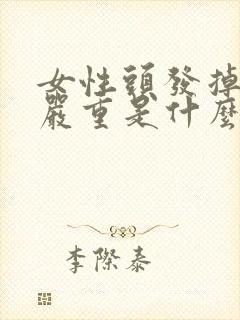 女性頭發掉
嚴重是什麼
李際泰